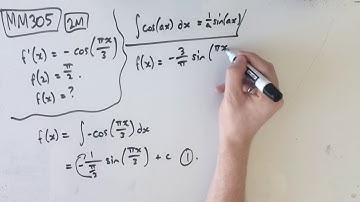 MM305 2M
f'(x) = -cos(πx/3)
f(2) = π/2.
f(x) = ?
∫cos(ax) dx = 1/a sin(ax)
f(x) = -3/π sin(πx
f(x) = ∫-cos(πx/3) dx
= -1/(π/3) sin(πx/3) + c ①.